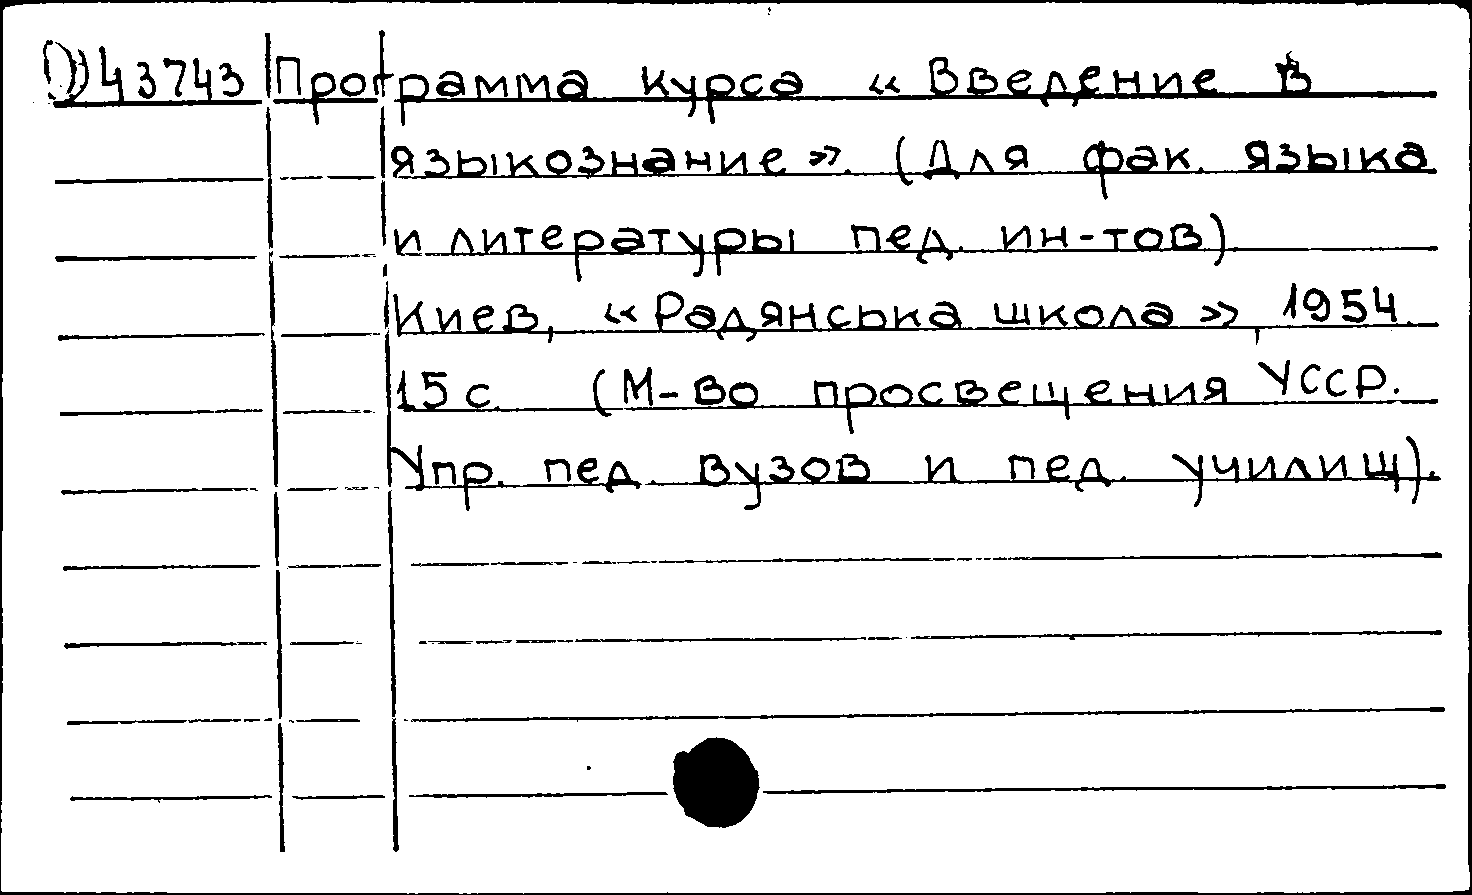 43743 Программа курса «Введение в
языкознание». (Для фак. языка
и литературы пед. ин-тов)
Киев, «Радянська школа», 1954.
15 с. (М-во просвещения УССР.
Упр. пед. вузов и пед. училищ).